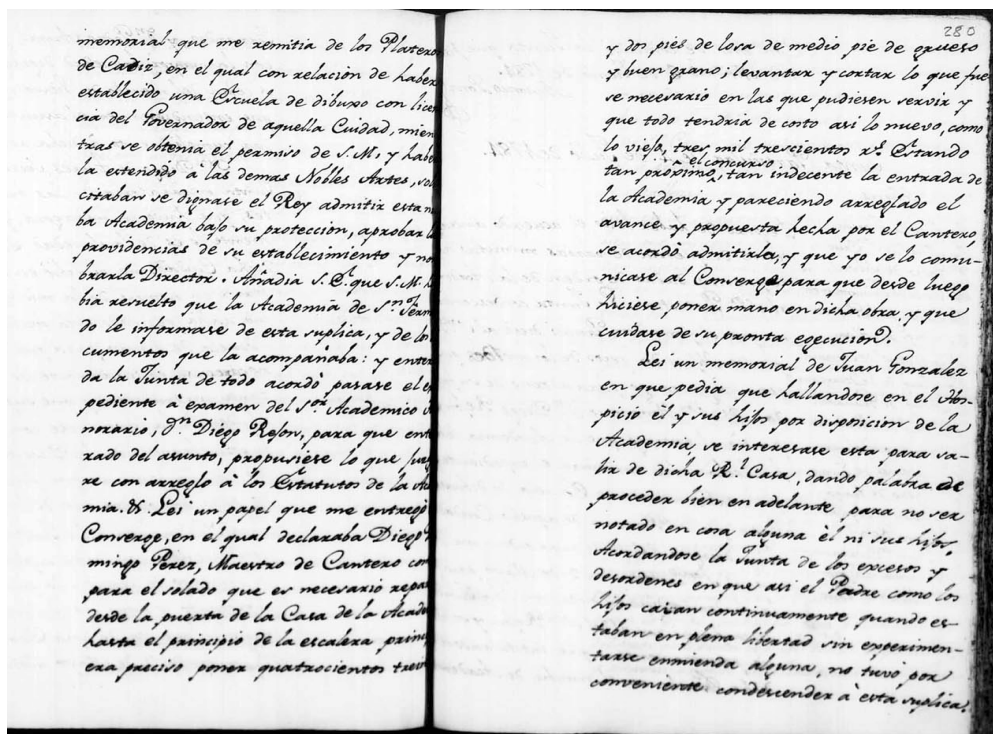 memorial que me remitia de los Plateros
de Cadiz, en el qual con relacion de haber
establecido una Escuela de dibuxo con licen
cia del Governador de aquella Cuidad, mien
tras se obtenia el permiso de S. M, y habe
la estendido à las demas Nobles Artes, soli
citaban se dignase el Rey admitir esta n
ba Academia baxo su proteccion, aprobar l
providencias de su establecimiento y no
brarla Director. Añadia S. E. que S. M. h
bia resuelto que la Academia de Sn. Fern
do le informase de esta suplica, y de los
cumentos que la acompañaba: y enter
da la Junta de todo acordò pasase el ex
pediente à examen del Sor. Academico
norario, Dn. Diego Rejon, para que ente
rado del asunto, propusiese lo que fue
re con arreglo à los Estatutos de la Aca
mia. &. Lei un papel que me entregò
Converge, en el qual declaraba Diego
mingo Perez, Maestro de Cantero con
para el solado que es necesario repa
desde la puerta de la Casa de la Acade
hasta el principio de la escalera princi
era preciso poner quatrocientos trein
280
y dos pies de losa de medio pie de grueso
y buen grano; levantar y cortar lo que fue
se necesario en las que pudiesen servir y
que todo tendria de costo asi lo nuevo, como
lo viejo, tres mil trescientos rs. Estando
tan pròximo el concurso, tan indecente la entrada de
la Academia y pareciendo arreglado el
avance y propuesta hecha por el Cantero,
se acordò admitirla, y que yo se lo comu-
nicase al Converge para que desde luego
hiciese poner mano en dicha obra, y que
cuidase de su pronta egecucion.
Lei un memorial de Juan Gonzalez
en que pedia que hallandose en el Hos-
picio èl y sus hijos por disposicion de la
Academia, se interesase esta para sa-
lir de dicha Rl. Casa, dando palabra de
proceder bien en adelante para no ser
notado en cosa alguna èl ni sus hijos,
Acordandose la Junta de los excesos y
desordenes en que asi el Padre como los
hijos caian continuamente quando es-
taban en plena libertad sin experimen-
tarse enmienda alguna, no tuvo por
conveniente condescender à esta suplica.